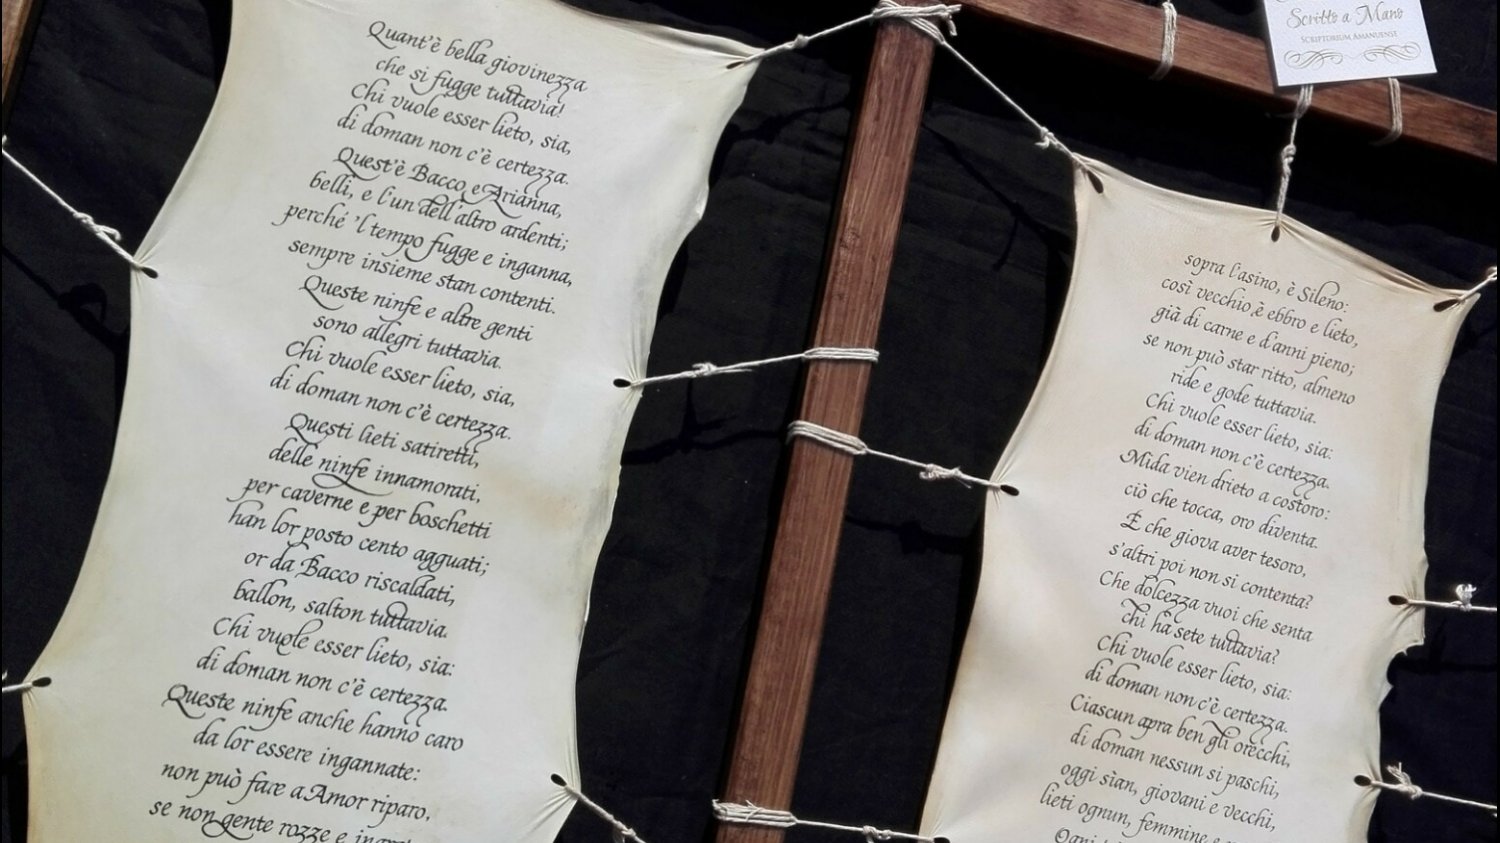 Quant'è bella giovinezza
che si fugge tuttavia!
Chi vuole esser lieto, sia,
di doman non c'è certezza.
Quest'è Bacco e Arianna,
belli, e l'un dell'altro ardenti;
perché 'l tempo fugge e inganna,
sempre insieme stan contenti.
Queste ninfe e altre genti
sono allegri tuttavia.
Chi vuole esser lieto, sia,
di doman non c'è certezza.
Questi lieti satiretti,
delle ninfe innamorati,
per caverne e per boschetti
han lor posto cento agguati;
or da Bacco riscaldati,
ballon, salton tuttavia.
Chi vuole esser lieto, sia:
di doman non c'è certezza.
Queste ninfe anche hanno caro
da lor essere ingannate:
non può fare a Amor riparo,
se non gente rozze e
Scritto a Mano
SCRIPTORIUM AMANUENSE
sopra l'asino, è Sileno:
così vecchio è ebbro e lieto,
già di carne e d'anni pieno;
se non può star ritto, almeno
ride e gode tuttavia.
Chi vuole esser lieto, sia:
di doman non c'è certezza.
Mida vien drieto a costoro:
ciò che tocca, oro diventa.
E che giova aver tesoro,
s'altri poi non si contenta?
Che dolcezza vuoi che senta
chi ha sete tuttavia?
Chi vuole esser lieto, sia:
di doman non c'è certezza.
Ciascun apra ben gli orecchi,
di doman nessun si paschi,
oggi sìan, giovani e vecchi,
lieti ognun, femmine e